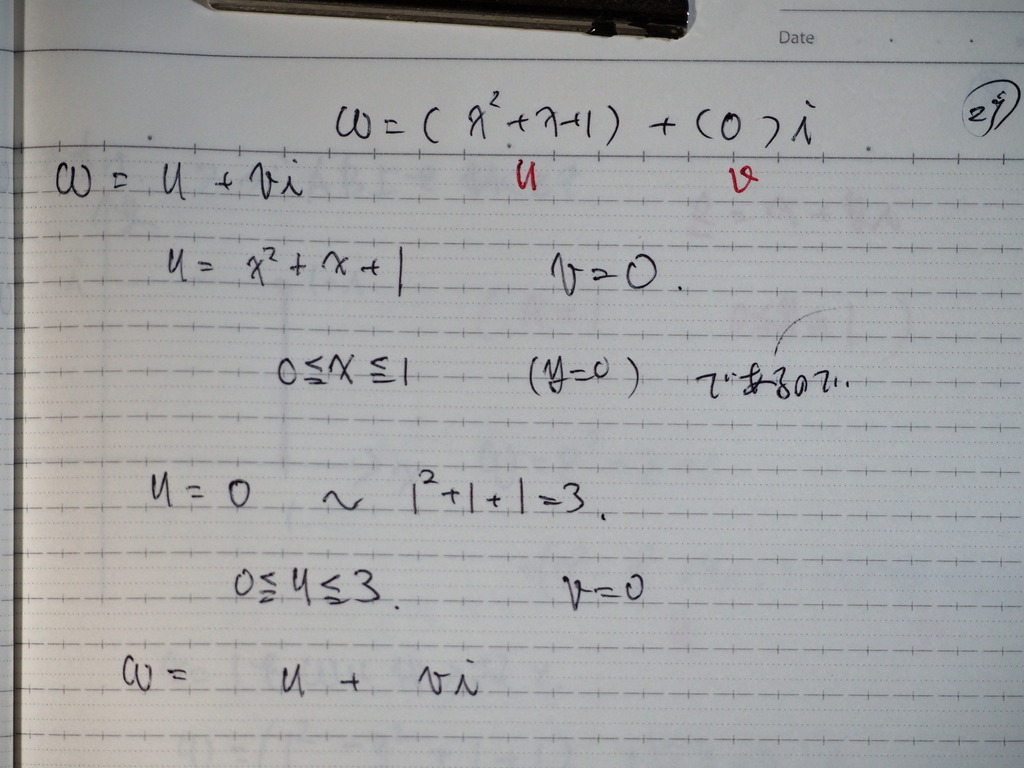 Date
ω = ( x² + x + 1 ) + ( 0 ) i
ω = u + vi u v
u = x² + x + 1 v = 0 .
0 ≦ x ≦ 1 (y=0) であるので..
u = 0 ~ 1² + 1 + 1 = 3 .
0 ≦ u ≦ 3 . v = 0
ω = u + vi